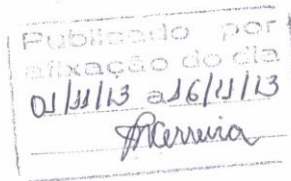 Publicado por
afixação do dia
01/11/13 a 16/11/13